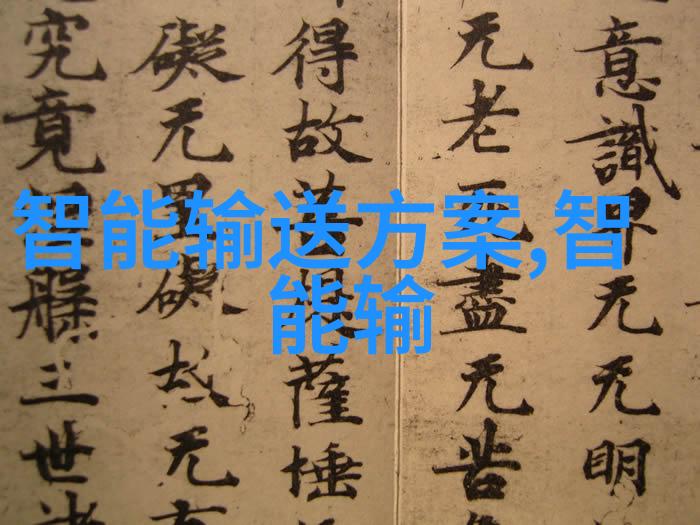 意識界无无明
无老死盡无苦
得故菩提薩埵
礙无罣礙故无有
究竟涅槃三世諸
智能输送方案,智
能输